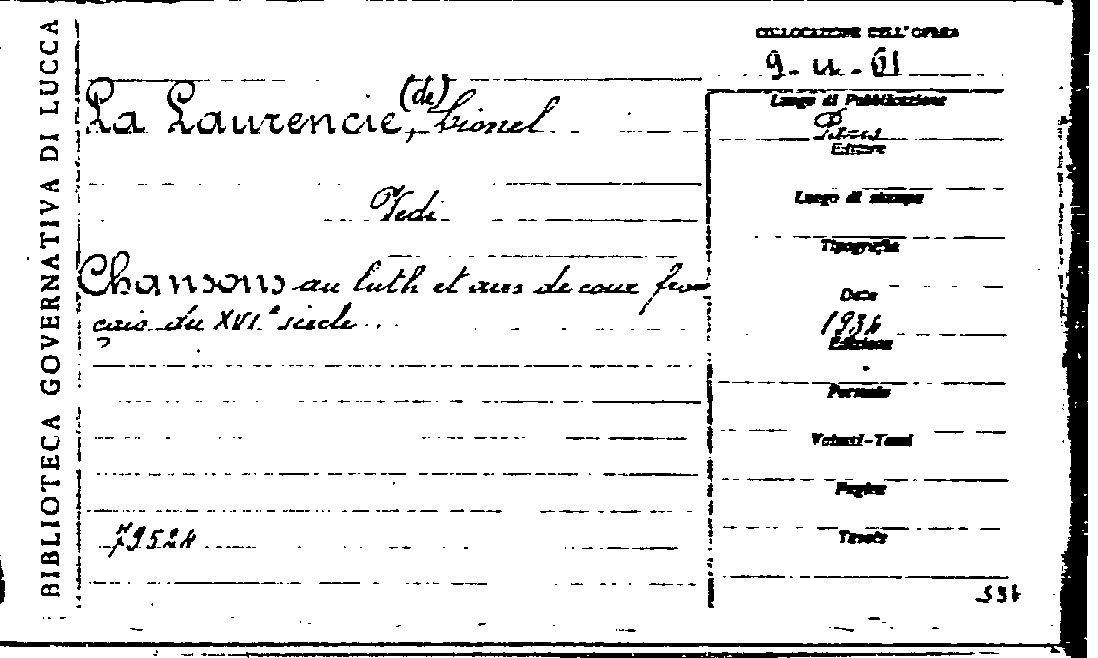 BIBLIOTECA GOVERNATIVA DI LUCCA
COLLOCAZIONE DELL'OPERA
La Laurencie, (de) Lionel
Vedi
Chansons au luth et airs de cour fran
çais du XVIe siecle
79524
Luogo di Pubblicazione
Paris
Editore
Luogo di stampa
Tipografia
Data
1934
Edizione
Formato
Volumi-Tomi
Pagine
Tavole